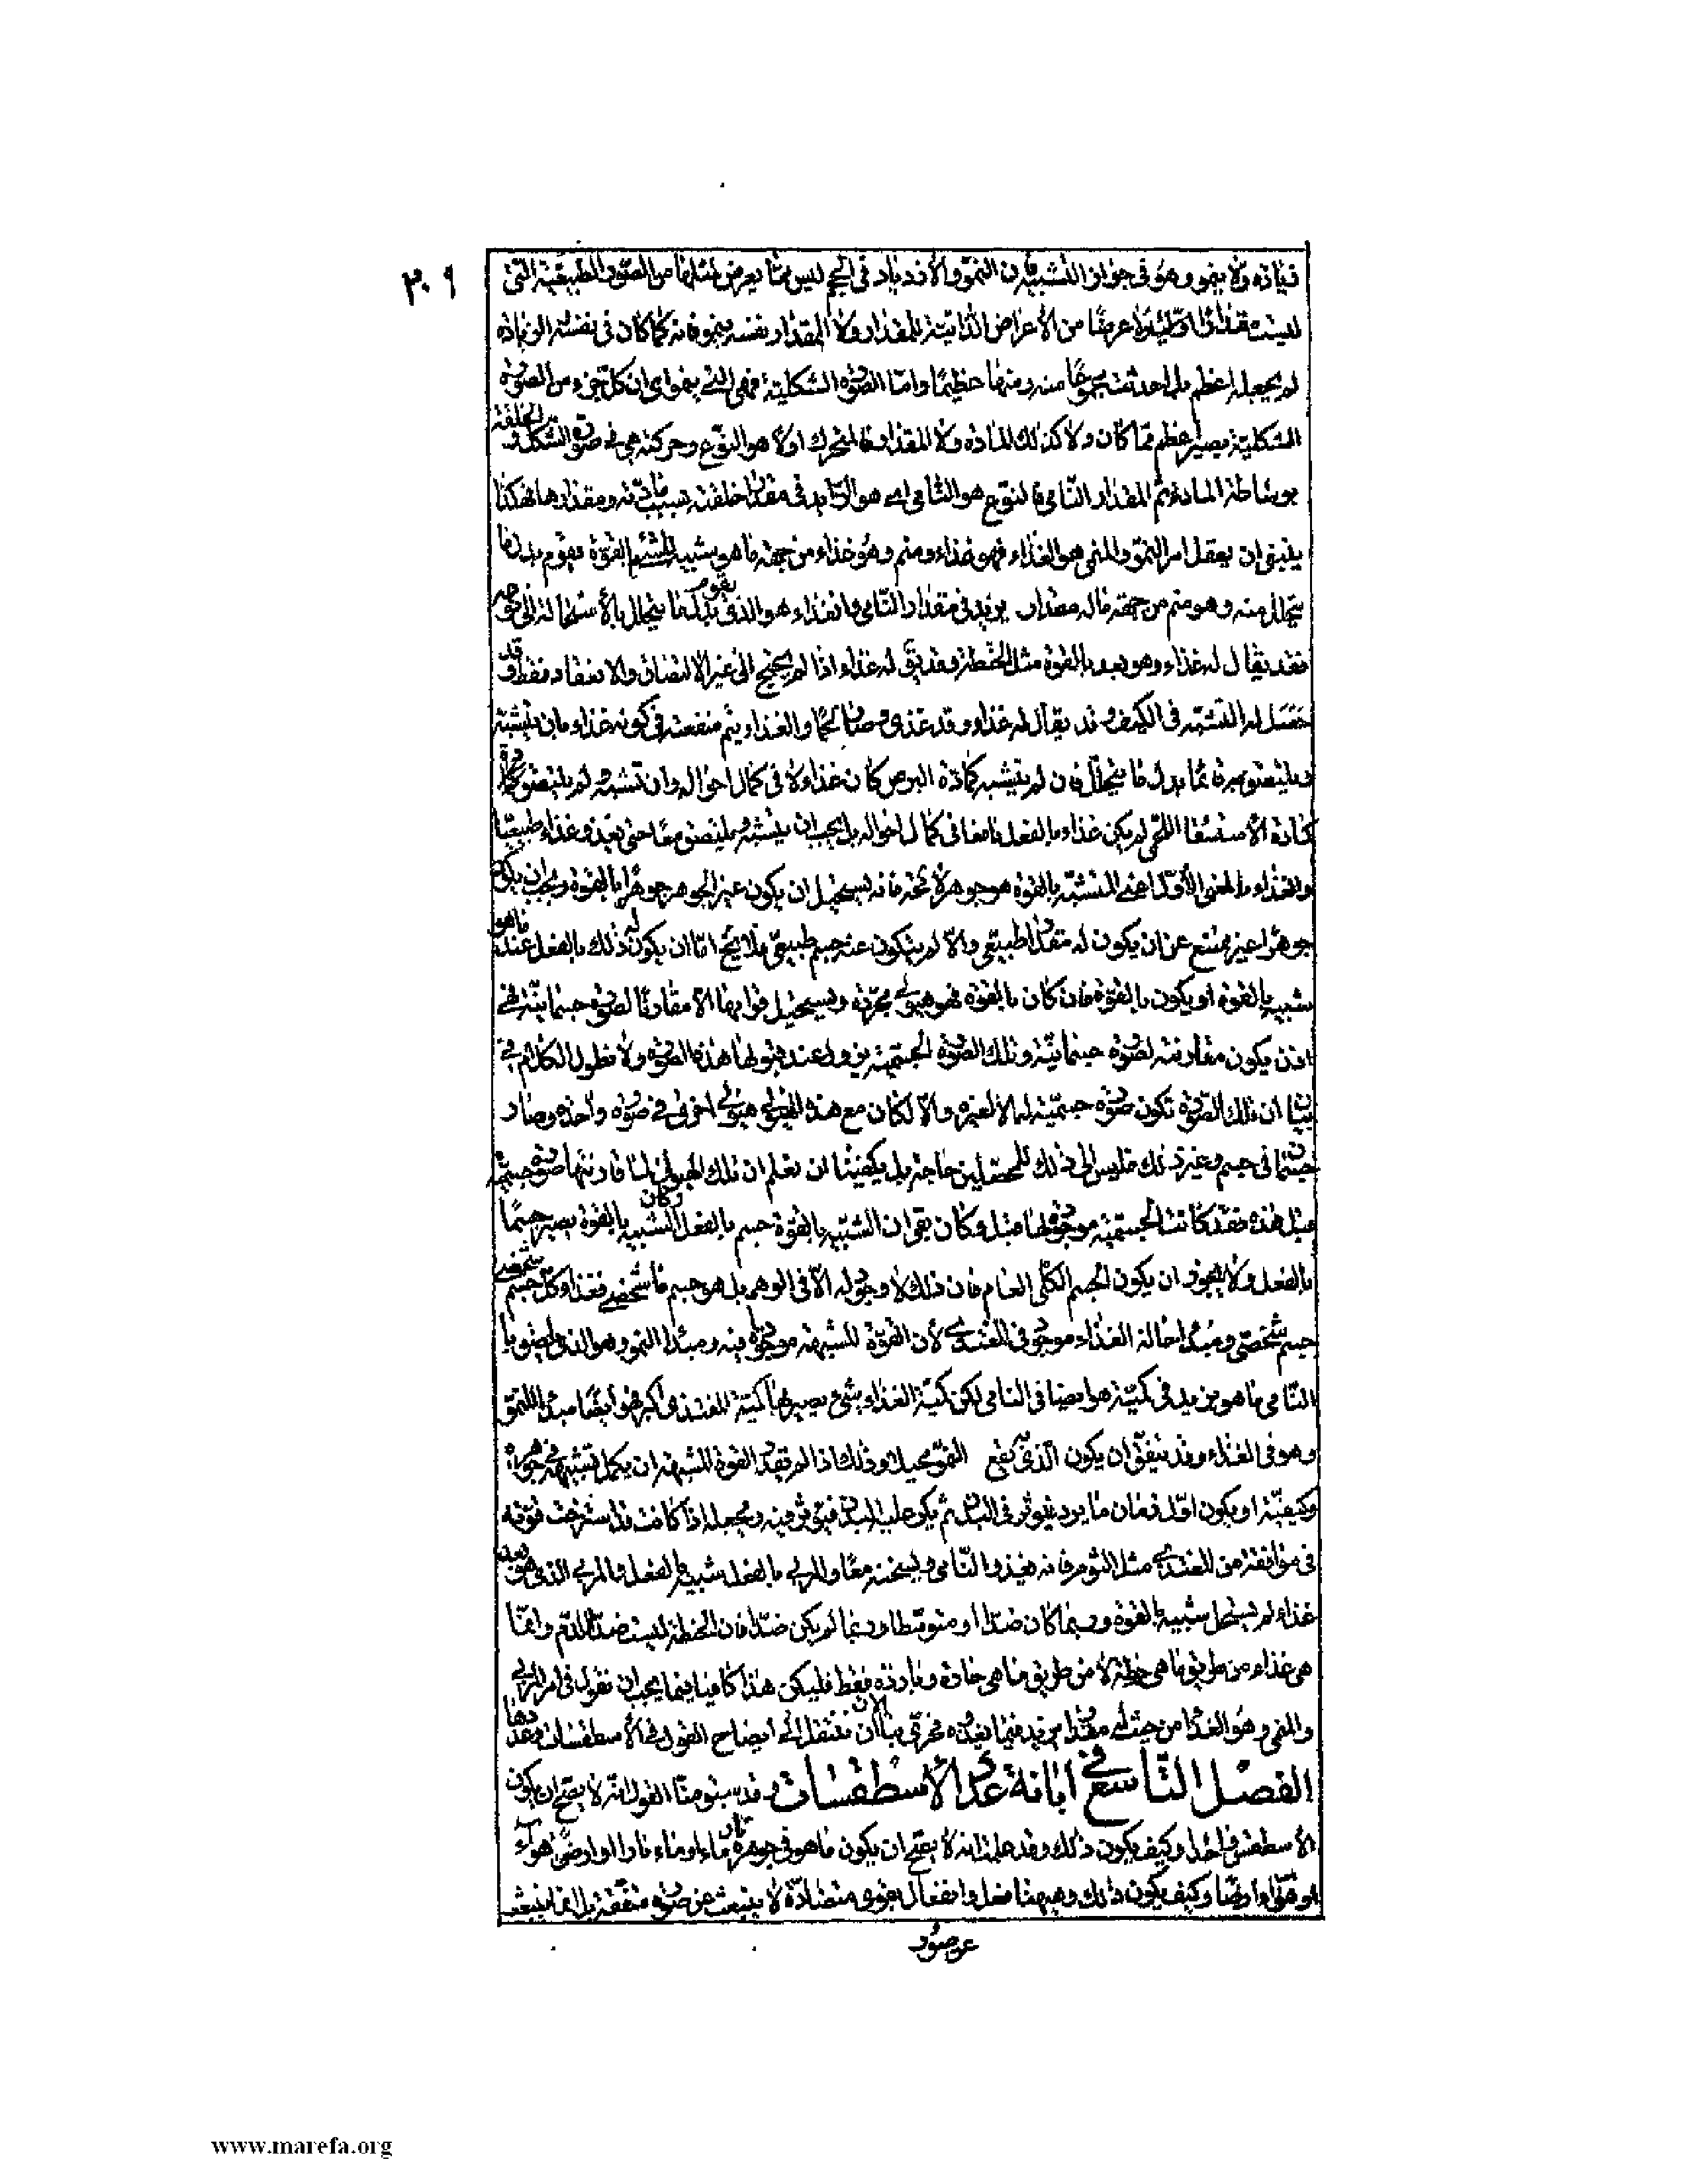 ٣٠٩
زيادة ولا ينمو وهو في جواز التشبيه فان النمو والازدياد في الحجم ليس مما يعرض لمثلها من الصور الطبيعية التي
ليست مقدارا اوليا ولا عرضا من الأعراض الذاتية للمقدار ولا المقدار نفسه ينمو فانه كما كان في نفسه الزيادة
لم يجعله اعظم بل احدث مجموعا منه ومنها عظيما واما الصورة الشكلية فهي التي ينمو اي ان كل جزء من الصورة
الشكلية يصير اعظم مما كان ولا كذلك المادة ولا المقدار فالمتحرك اولا هو النوع وحركته هي في صورة الشكل والخلقة
بوساطة المادة ثم المقدار النامي فالنوع هو النامي اي هو الزايد في مقدار خلقته بسبب مادته ومقدارها فهكذا
ينبغي ان يعقل امر النمو والمنمي هو الغذاء فهو غذاء ومنم وهو غذاء من جهة ما هو شبيه للشيء بالقوة فيقوم بدل ما
يتحلل منه وهو منم من جهة ماله مقدار يزيد في مقدار النامي والغذاء هو الذي يقوم بدل ما يتحلل بالاستحالة الى نوعه
فقد يقال له غذاء وهو بعد بالقوة مثل الحنطة وقد يق له غذاء اذا لم يحتج الى غير الالتصاق والانعقاد فقط وقد
حصل له التشبه في الكيف وقد يقال له غذاء وقد غذى وصار لحما والغذاء يتم منفعته في كونه غذاء بان يتشبه
ويلتصق صورة فانما بدل ما يتحلل فان لم يتشبه كمادة البرص كان غذاء لا في كمال احواله وان تشبه ولم يلتصق
كمادة الاستسقا اللحمي لم يكن غذاء بالفعل نافعا في كمال احواله بل يجب ان يتشبه ويلتصق معا حتى يغذو غذاء طبيعيا
والغذاء بالمعنى الأول اعني المتشبه بالقوة هو جوهر لا محة فانه يستحيل ان يكون غير الجوهر جوهرا بالقوة ويجب ان يكون
جوهرا غير ممتنع عن ان يكون له مقدار طبيعي والا لم يتكون عنه جسم طبيعي فلا يخ اما ان يكون له ذلك بالفعل عند ما هو
شبيه بالقوة او يكون بالقوة فان كان بالقوة فهو هيولى مجردة ويستحيل قوامها الا مقارنا لصورة جسمانية فهي
اذن يكون مقارنة لصورة جسمانية وتلك الصورة الجسمية يزول عند قبولها هذه الصورة ولا نطول الكلام في
بيان ان تلك الصورة تكون صورة جسمية لها لا لغيره والا لكان مع هذه الهيولى هيولى اخرى في صورة واحدة وصار
جسما في جسم وغير ذلك فليس الى ذلك للمحصلين حاجة بل يكفينا ان نعلم ان تلك الهيولى لما قارنتها صورة جسمية
مثل هذه فقد كانت الجسمية موجودة لها قبل وكان يق ان الشبيه بالقوة جسم بالفعل وكان الشبيه بالقوة يصير جسما
بالفعل ولا يجوز ان يكون الجسم الكلي العام فان ذلك لا وجود له الا في الوهم بل هو جسم ما شخصي فغذاء كل جسم شخصي
جسم شخصي ومبدأ احالة الغذاء موجود في المغتذي لأن القوة المشبهة موجودة فيه ومبدأ النمو وهو الذي يلصق بالـ
النامي ما هو يزيد في كميته هو ايضا في النامي لكن كمية الغذاء شيء يصير بها كمية المغتذي اكبر فهو ايضا مبدأ للنمو
وهو في الغذاء وقد يتفق ان يكون الذي كفع النمو محيلا وذلك اذا لم تقدر القوة المشبهة ان يكمل تشبيهه في جوهره
وكيفيته او يكون اول زمان ما يرد يؤثر في البدن ثم يكر عليه البدن فيؤثر فيه ويحيله اذا كانت قد استرخت قوته
في موافقة من المغتذي مثل الثوم فانه يغذو النامي ويسخنه معا والمربي بالفعل شبيه بالفعل والمربي الذي هو بعد
غذاء لم يستحل شبيه بالقوة وربما كان ضدا او متوسطا وربما لم يكن ضدا فان الحنطة ليست ضد الدم وانما
هي غذاء من طريق ما هي حنطة لا من طريق ما هي حارة وباردة فقط فليكن هذا كافيا فيما يجب ان نقول في امر المربي
والمنمي وهو الغذاء من حيث له مقدار يزيد فيما يغذوه فحري بنا الان ان ننتقل الى ايضاح القول في الأسطقسات وعددها
الفصل التاسع في ابانة عدد الأسطقسات وقد سبق منا القول انه لا يصح ان يكون
الأسطقس واحدا وكيف يكون ذلك وقد علمنا انه لا يصح ان يكون ما هو في جوهره نار ماء او ماء نارا او ارض هواء
او هواء ارضا وكيف يكون ذلك وهيهنا فعل وانفعال بقوى متضادة لا ينبعث عن صورة متفقة بل انما ينبعث
عن صور
www.marefa.org